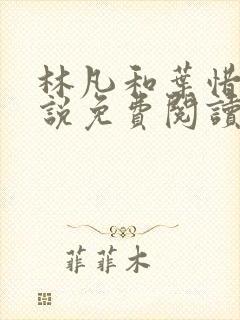 林凡和葉惜
說免費閱讀
菲菲木